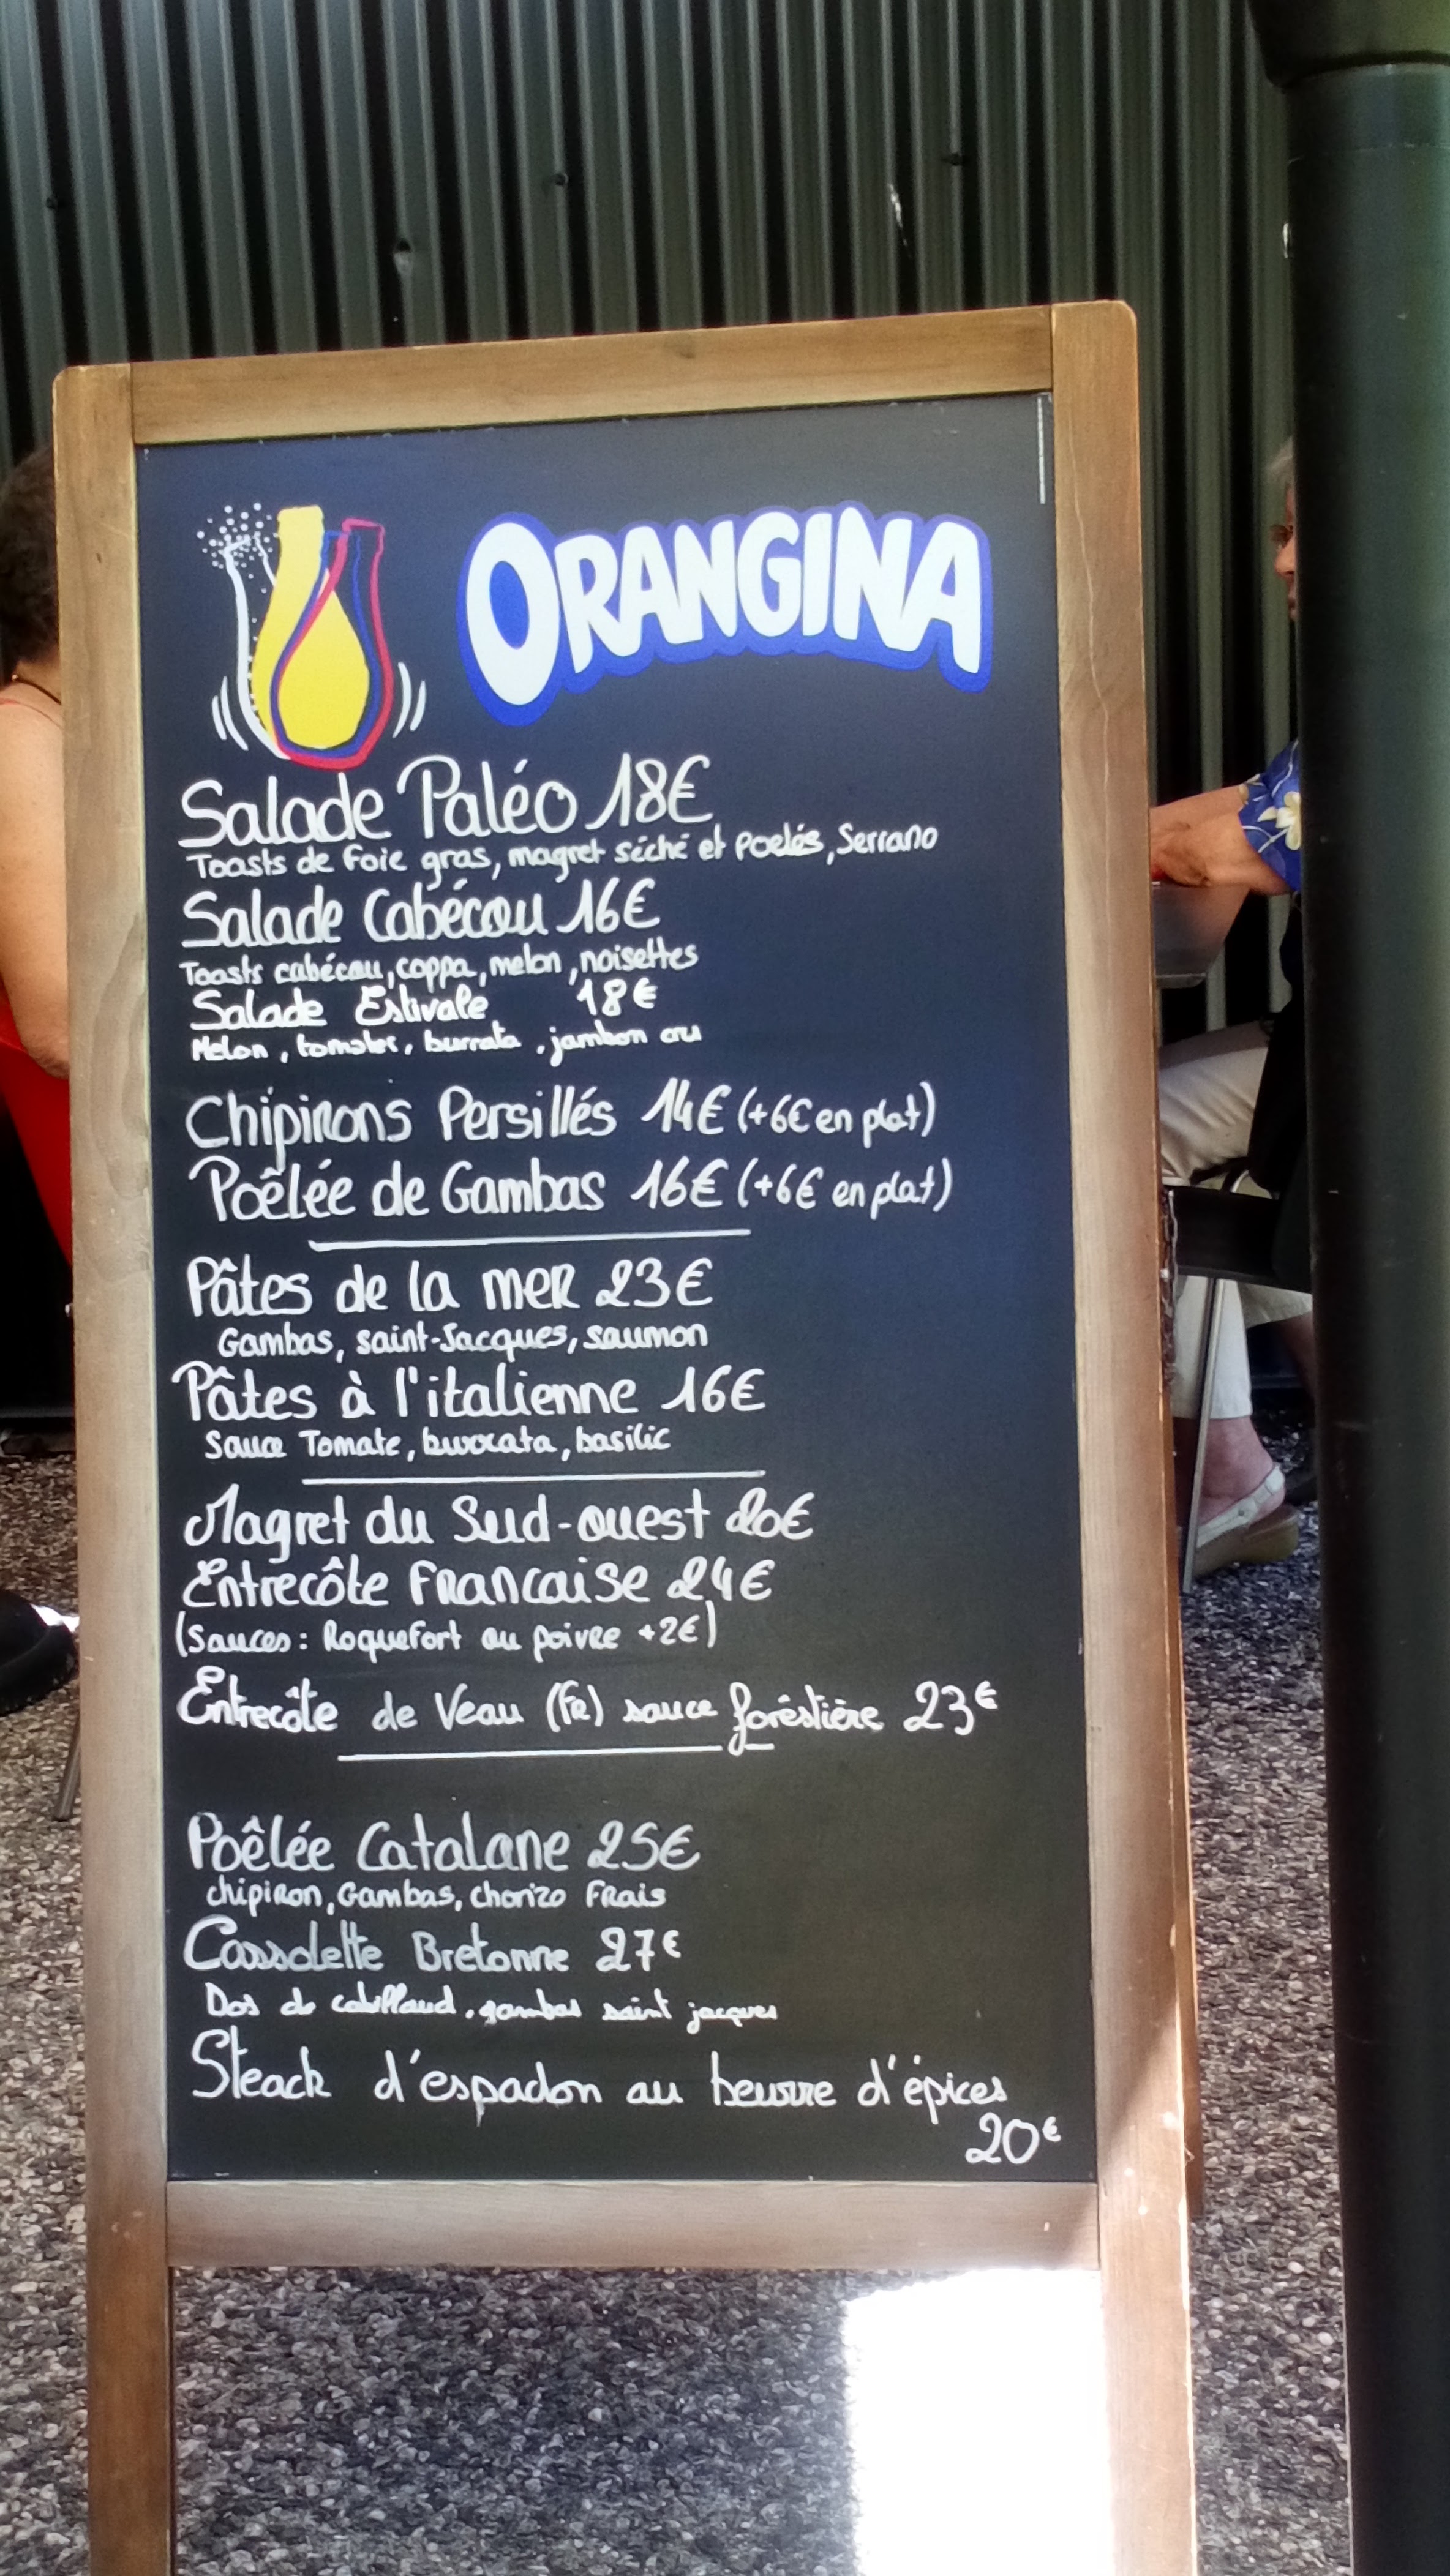 ORANGINA
Salade Paléo 18€
Toasts de foie gras, magret séché et poelés, Serrano
Salade Cabécou 16€
Toasts cabécou, coppa, melon, noisettes
Salade Estivale 18€
Melon, tomates, burrata, jambon cru
Chipirons Persillés 14€ (+6€ en plat)
Poêlée de Gambas 16€ (+6€ en plat)
Pâtes de la mer 23€
Gambas, saint-Jacques, saumon
Pâtes à l'italienne 16€
Sauce Tomate, burrata, basilic
Magret du Sud-ouest 20€
Entrecôte Francaise 24€
(Sauces: Roquefort ou poivre +2€)
Entrecôte de Veau (FR) sauce foréstière 23€
Poêlée Catalane 25€
chipiron, Gambas, chorizo Frais
Cassolette Bretonne 27€
Dos de cabillaud, gambas saint jacques
Steack d'espadon au beurre d'épices
20€